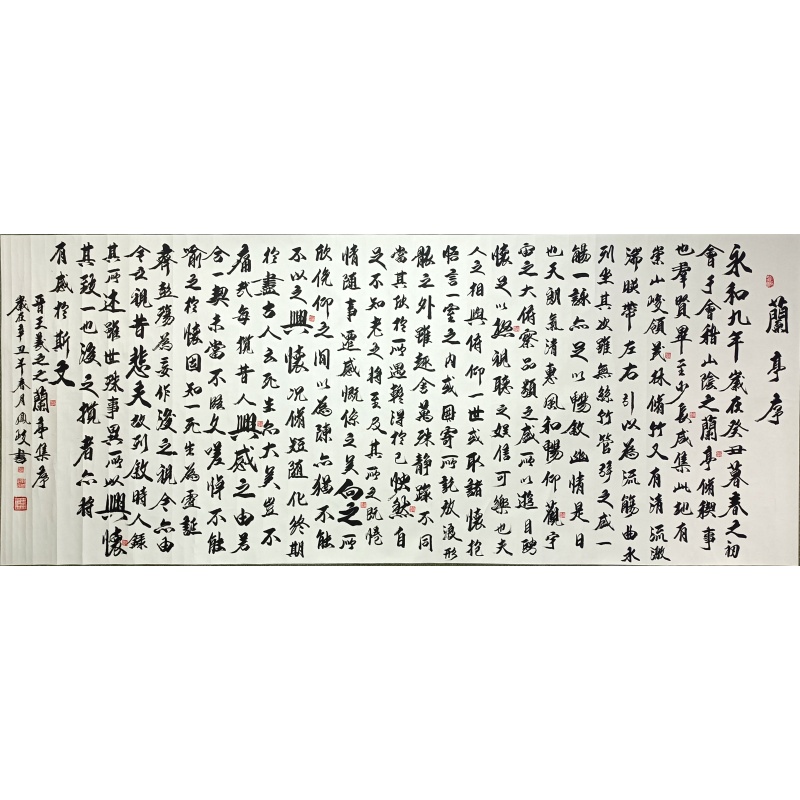 蘭亭序
永和九年歲在癸丑暮春之初
會于會稽山陰之蘭亭脩禊事
也羣賢畢至少長咸集此地有
崇山峻領茂林脩竹又有清流激
湍暎帶左右引以為流觴曲水
列坐其次雖無絲竹管弦之盛一
觴一詠亦足以暢敘幽情是日
也天朗氣清惠風和暢仰觀宇
宙之大俯察品類之盛所以遊目騁
懷足以極視聽之娛信可樂也夫
人之相與俯仰一世或取諸懷抱
悟言一室之內或因寄所託放浪形
骸之外雖趣舍萬殊靜躁不同
當其欣於所遇暫得於己怏然自
足不知老之將至及其所之既惓
情隨事遷感慨係之矣向之所
欣俛仰之間以為陳亦猶不能
不以之興懷況脩短隨化終期
於盡古人云死生亦大矣豈不
痛哉每攬昔人興感之由若
合一契未嘗不臨文嗟悼不能
喻之於懷固知一死生為虛誕
齊彭殤為妄作後之視今亦由
今之視昔悲夫故列敘時人錄
其所述雖世殊事異所以興懷
其致一也後之攬者亦將
有感於斯文
晉王羲之之蘭亭集序
歲在辛丑年春月